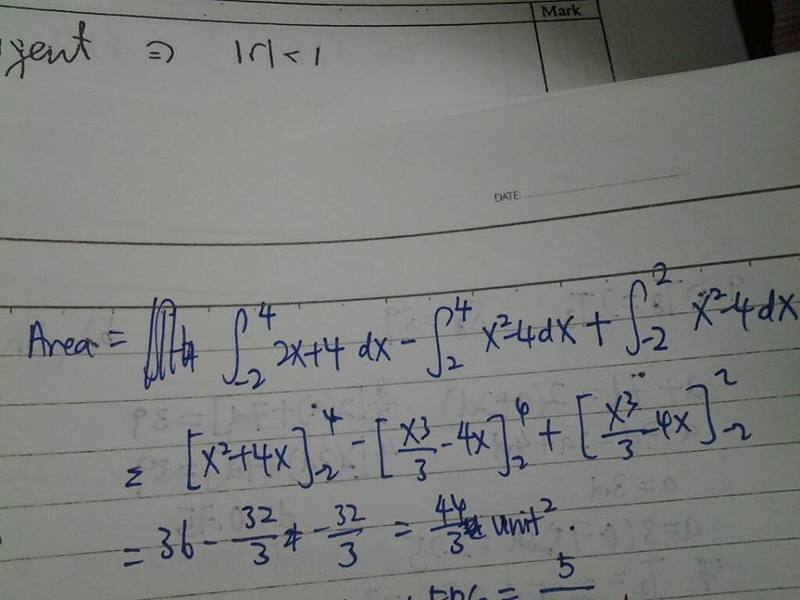 Mark
⇒ |r| < 1
DATE:
Area = ∫₋₂⁴ 2x+4 dx - ∫₂⁴ x²-4 dx + ∫₋₂² x²-4 dx
= [x²+4x]₋₂⁴ - [x³/3 - 4x]₂⁴ + [x³/3 - 4x]₋₂²
= 36 - 32/3 - 32/3 = 44/3 unit².
= 5